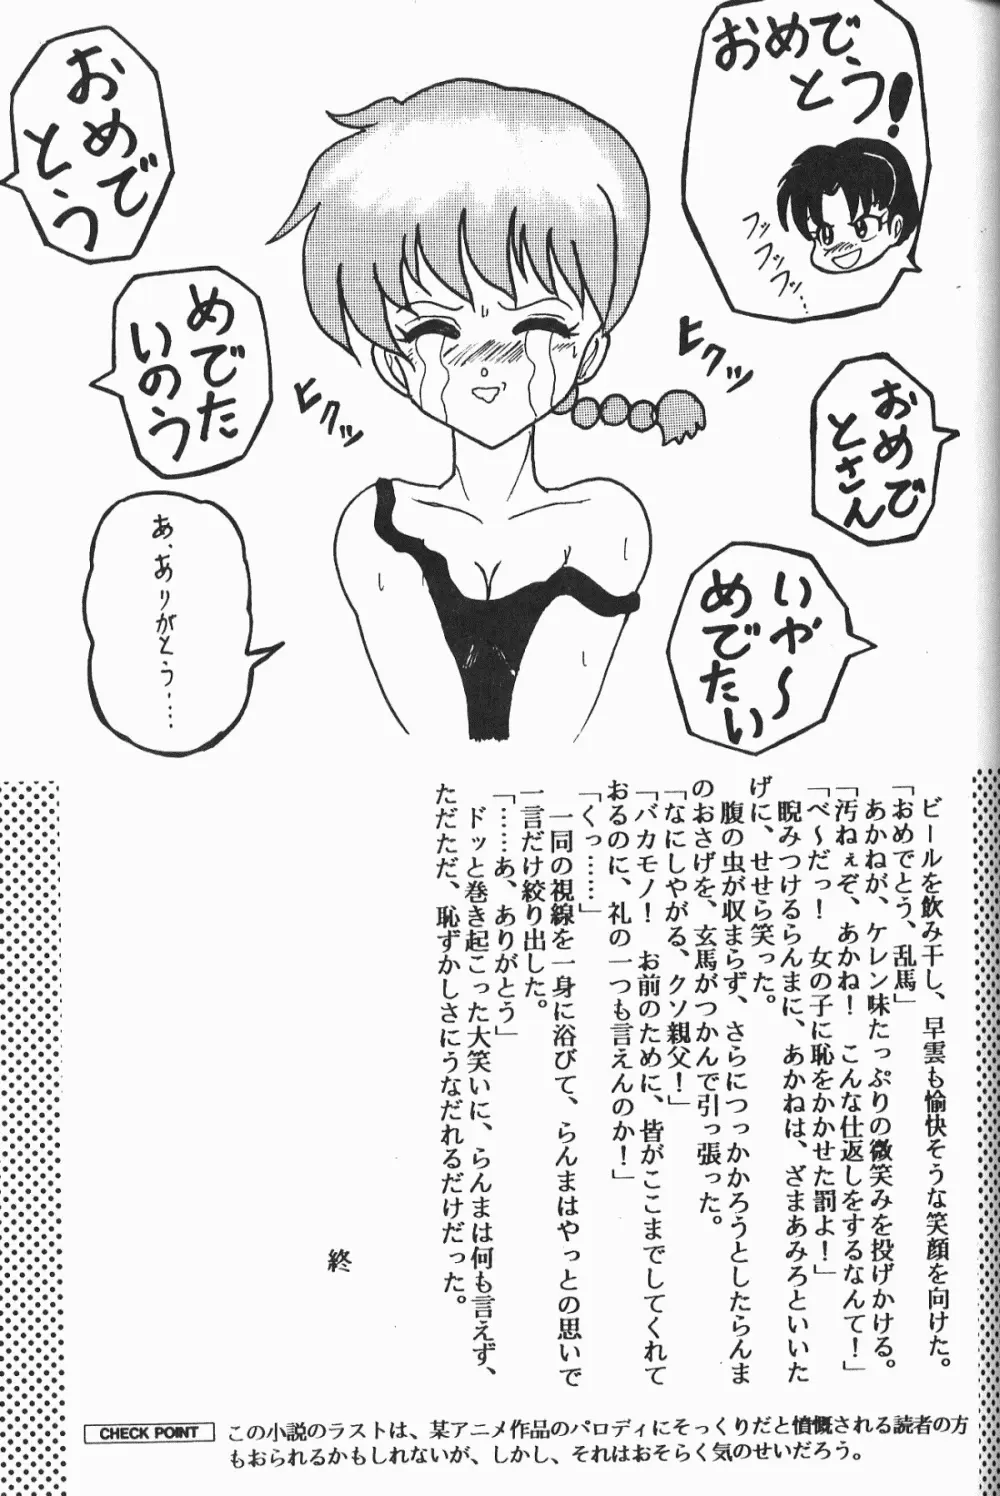 おめで
とう！
フッ
フッ
フッ…
おめで
とう
めでた
いのう
ヒクッ
ヒクッ
おめで
とさん
いや〜
めでたい
あ、ありがとう……
ビールを飲み干し、早雲も愉快そうな笑顔を向けた。
「おめでとう、乱馬」
あかねが、ケレン味たっぷりの微笑みを投げかける。
「汚ねぇぞ、あかね！　こんな仕返しをするなんて！」
「べ〜だっ！　女の子に恥をかかせた罰よ！」
睨みつけるらんまに、あかねは、ざまあみろといいた
げに、せせら笑った。
腹の虫が収まらず、さらにつっかかろうとしたらんま
のおさげを、玄馬がつかんで引っ張った。
「なにしやがる、クソ親父！」
「バカモノ！　お前のために、皆がここまでしてくれて
おるのに、礼の一つも言えんのか！」
「くっ……」
一同の視線を一身に浴びて、らんまはやっとの思いで
一言だけ絞り出した。
「……あ、ありがとう」
ドッと巻き起こった大笑いに、らんまは何も言えず、
ただただ、恥ずかしさにうなだれるだけだった。
終
CHECK POINT
この小説のラストは、某アニメ作品のパロディにそっくりだと憤慨される読者の方
もおられるかもしれないが、しかし、それはおそらく気のせいだろう。